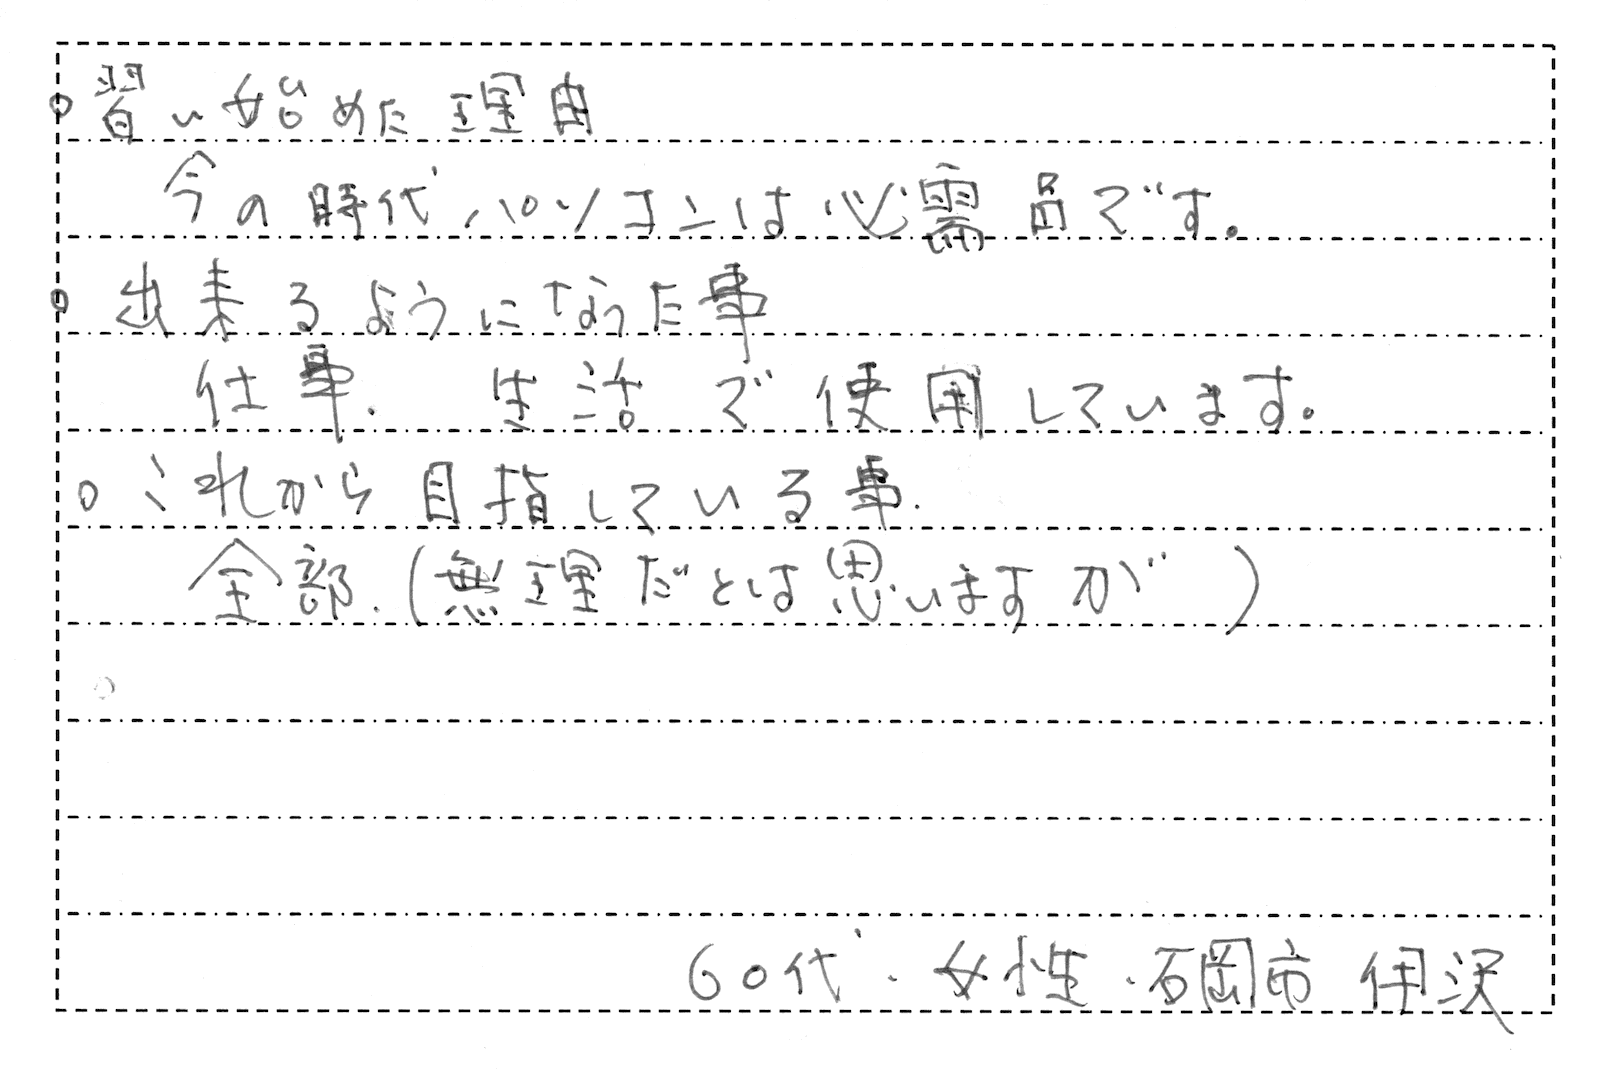 ○習い始めた理由
今の時代パソコンは必需品です。
○出来るようになった事
仕事. 生活で使用しています。
○これから目指している事.
全部.(無理だとは思いますが)
60代・女性・石岡市 伊沢